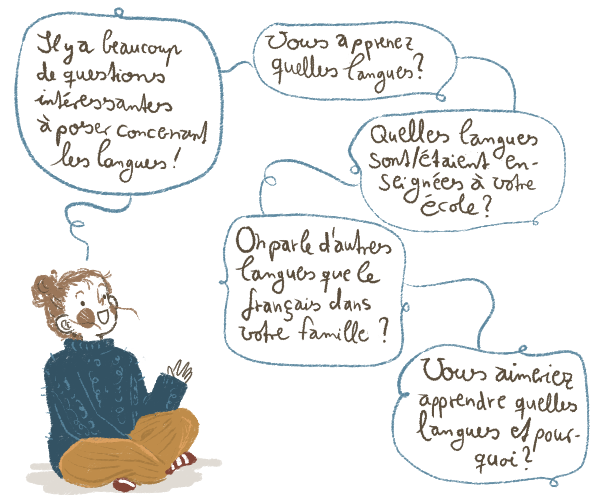 Il y a beaucoup
de questions
intéressantes
à poser concernant
les langues !
Vous apprenez
quelles langues ?
Quelles langues
sont/étaient en-
seignées à votre
école ?
On parle d'autres
langues que le
français dans
votre famille ?
Vous aimeriez
apprendre quelles
langues et pour-
quoi ?